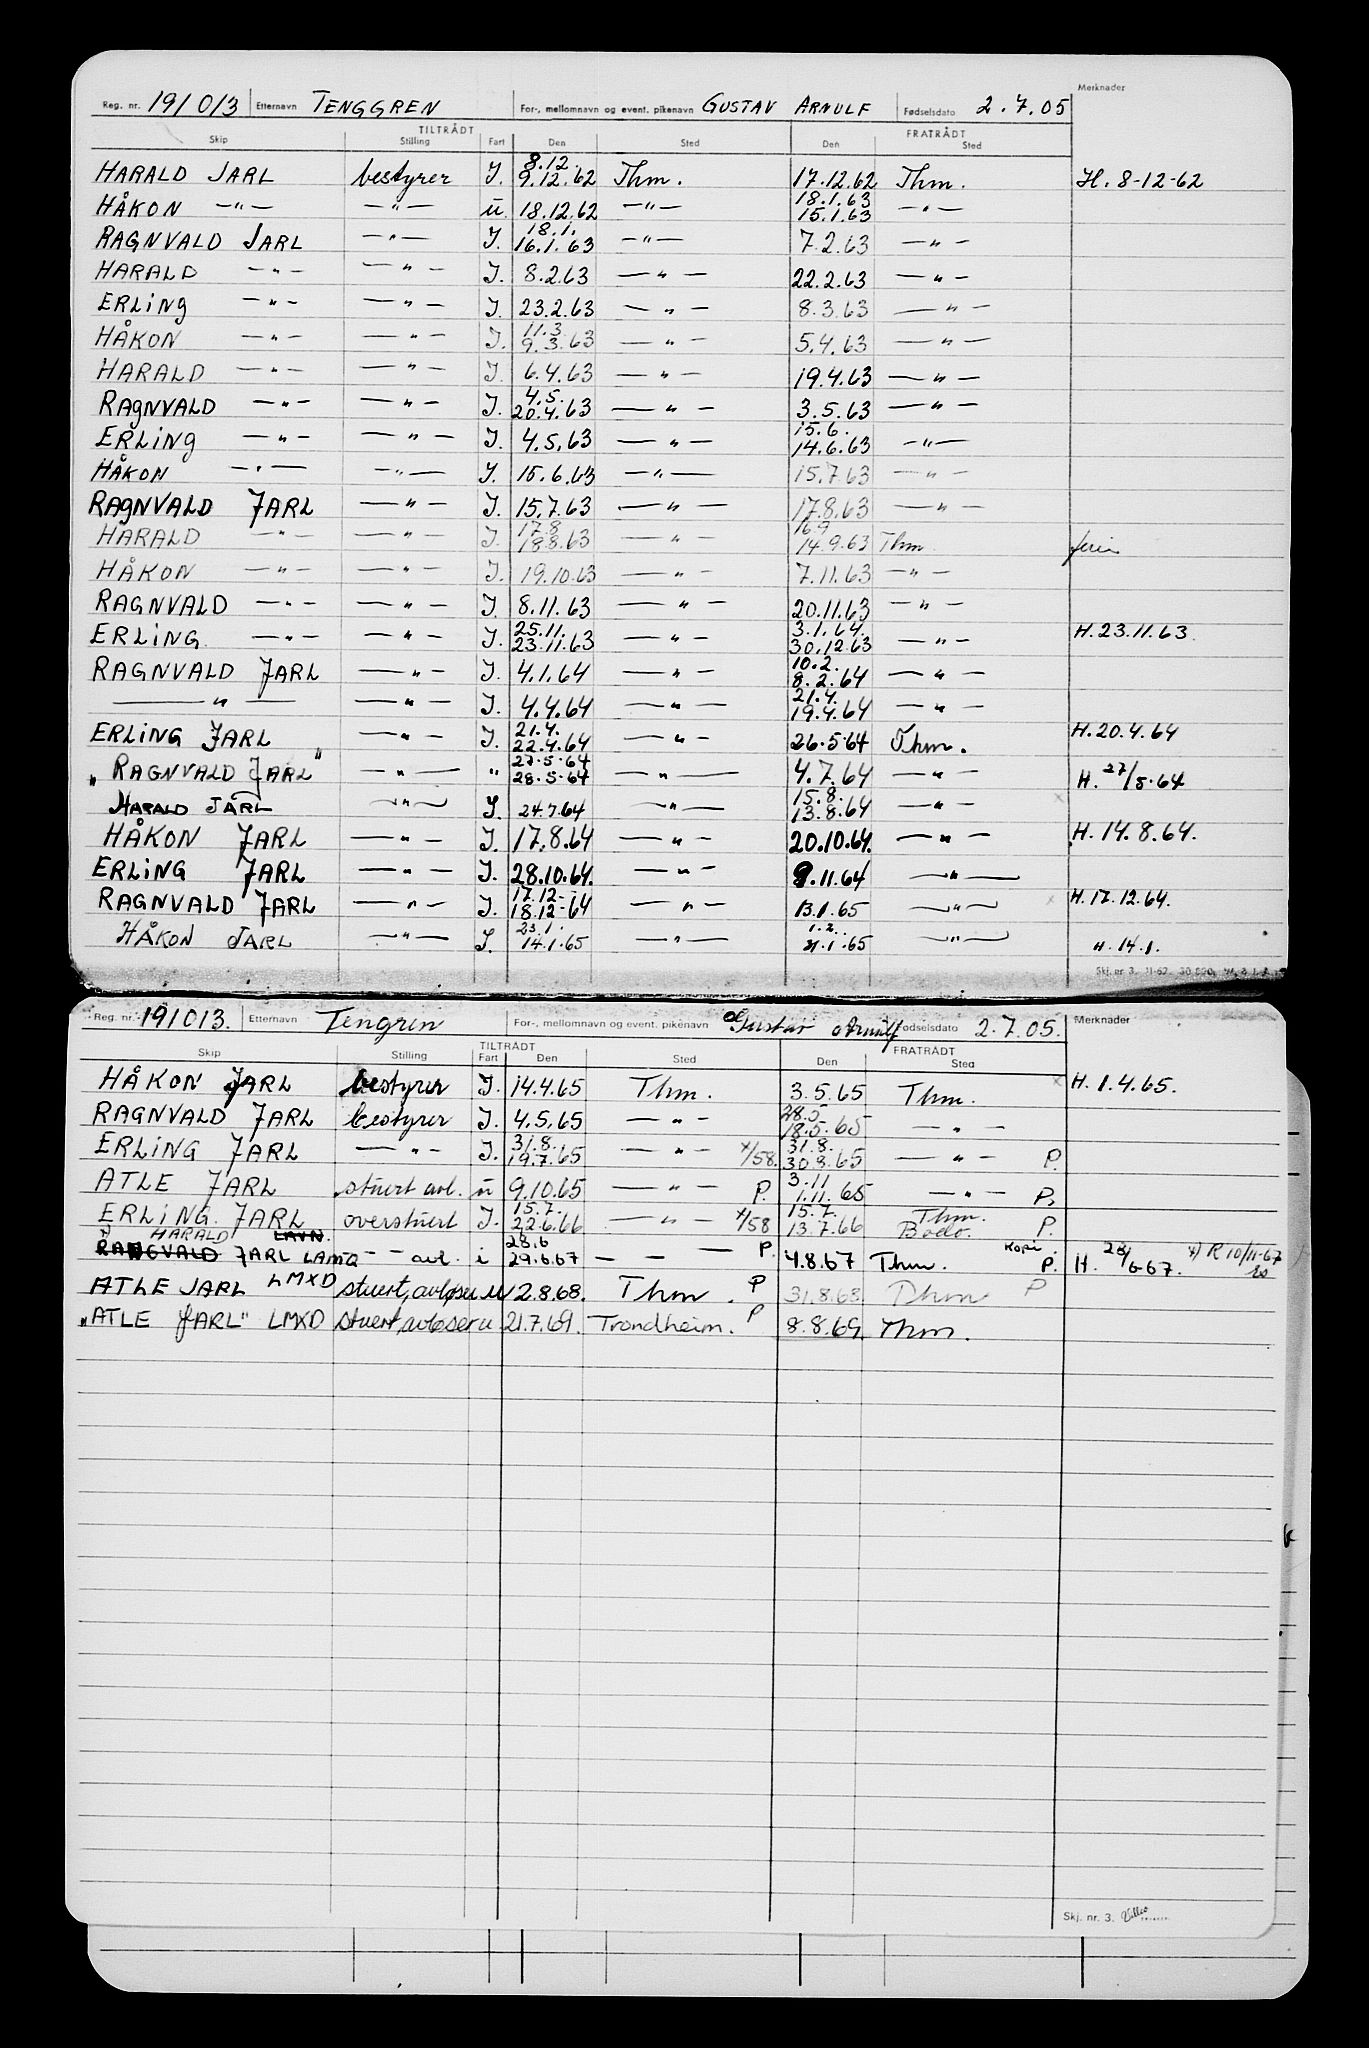 Merknader
Reg. nr. 191013 Etternavn TENGGREN For-, mellomnavn og event. pikenavn GUSTAV ARNULF Fødselsdato 2.7.05
TILTRÅDT FRATRÅDT
Skip Stilling Fart Den Sted Den Sted
8.12.
HARALD JARL bestyrer I. 9.12.62 Thm. 17.12.62 Thm. H. 8-12-62
18.1.63
HÅKON —"— —"— u. 18.12.62 —"— 15.1.63 —"—
18.1.
RAGNVALD JARL —"— I. 16.1.63 —"— 7.2.63 —"—
HARALD —"— —"— I. 8.2.63 —"— 22.2.63 —"—
ERLING —"— —"— I. 23.2.63 —"— 8.3.63 —"—
11.3.
HÅKON —"— —"— I. 9.3.63 —"— 5.4.63 —"—
HARALD —"— —"— I. 6.4.63 —"— 19.4.63 —"—
4.5.
RAGNVALD —"— —"— I. 20.4.63 —"— 3.5.63 —"—
15.6.
ERLING —"— —"— I. 4.5.63 —"— 14.6.63 —"—
HÅKON —"— —"— I. 15.6.63 —"— 15.7.63 —"—
RAGNVALD JARL —"— I. 15.7.63 —"— 17.8.63 —"—
17.8 16.9
HARALD —"— —"— I. 18.8.63 —"— 14.9.63 Thm. ferie
HÅKON —"— —"— I. 19.10.63 —"— 7.11.63 —"—
RAGNVALD —"— —"— I. 8.11.63 —"— 20.11.63 —"—
25.11. 3.1.64.
ERLING. —"— —"— I. 23.11.63 —"— 30.12.63 —"— H.23.11.63.
10.2.
RAGNVALD JARL —"— I. 4.1.64 —"— 8.2.64 —"—
21.4.
—"— —"— I. 4.4.64 —"— 19.4.64 —"—
21.4.
ERLING JARL —"— I. 22.4.64 —"— 26.5.64 Thm. H.20.4.64
27.5.64
"RAGNVALD JARL" —"— " 28.5.64 —"— 4.7.64 —"— H. 27/5.64
15.8.
HARALD JARL —"— I. 24.7.64 —"— 13.8.64 —"—
HÅKON JARL —"— I. 17.8.64 —"— 20.10.64. —"— H.14.8.64.
ERLING JARL —"— I. 28.10.64. —"— 9.11.64 —"—
17.12-
RAGNVALD JARL —"— I. 18.12-64 —"— 13.1.65 —"— H.17.12.64.
23.1. 1.2.
HÅKON JARL —"— I. 14.1.65 —"— 21.1.65 —"— H. 14.1.
Skj. nr. 3. 11-62.
Reg. nr. 191013. Etternavn Tengrin For-, mellomnavn og event. pikenavn Gustav Arnulf Fødselsdato 2.7.05. Merknader
TILTRÅDT FRATRÅDT
Skip Stilling Fart Den Sted Den Sted
HÅKON JARL bestyrer I. 14.4.65 Thm. 3.5.65 Thm. H. 1.4.65.
28.5
RAGNVALD JARL bestyrer I. 4.5.65 —"— 18.5.65 —"—
31.8. 31.8.
ERLING JARL —"— I. 19.7.65 —"— x/58. 30.8.65 —"— P.
3.11
ATLE JARL stuert avl. u 9.10.65 —"— P. 1.11.65 —"— P.
15.7. 15.7. Thm.
ERLING. JARL overstuert I. 22.6.66 —"— x/58 13.7.66 Bodø. P.
HARALD LAVN. 28.6 Kopi
RAGNVALD JARL LAMQ —"— avl. i 29.6.67 — — P. 4.8.67 Thm. P. H. 28/6-67. x) R 10/11-67
ATLE JARL LMXD stuert, avløser u 12.8.68. Thm. P 31.8.68. Thm P
"ATLE JARL" LMXD stuert, avløser u 21.7.69. Trondheim. P 8.8.69. Thm.
Skj. nr. 3.